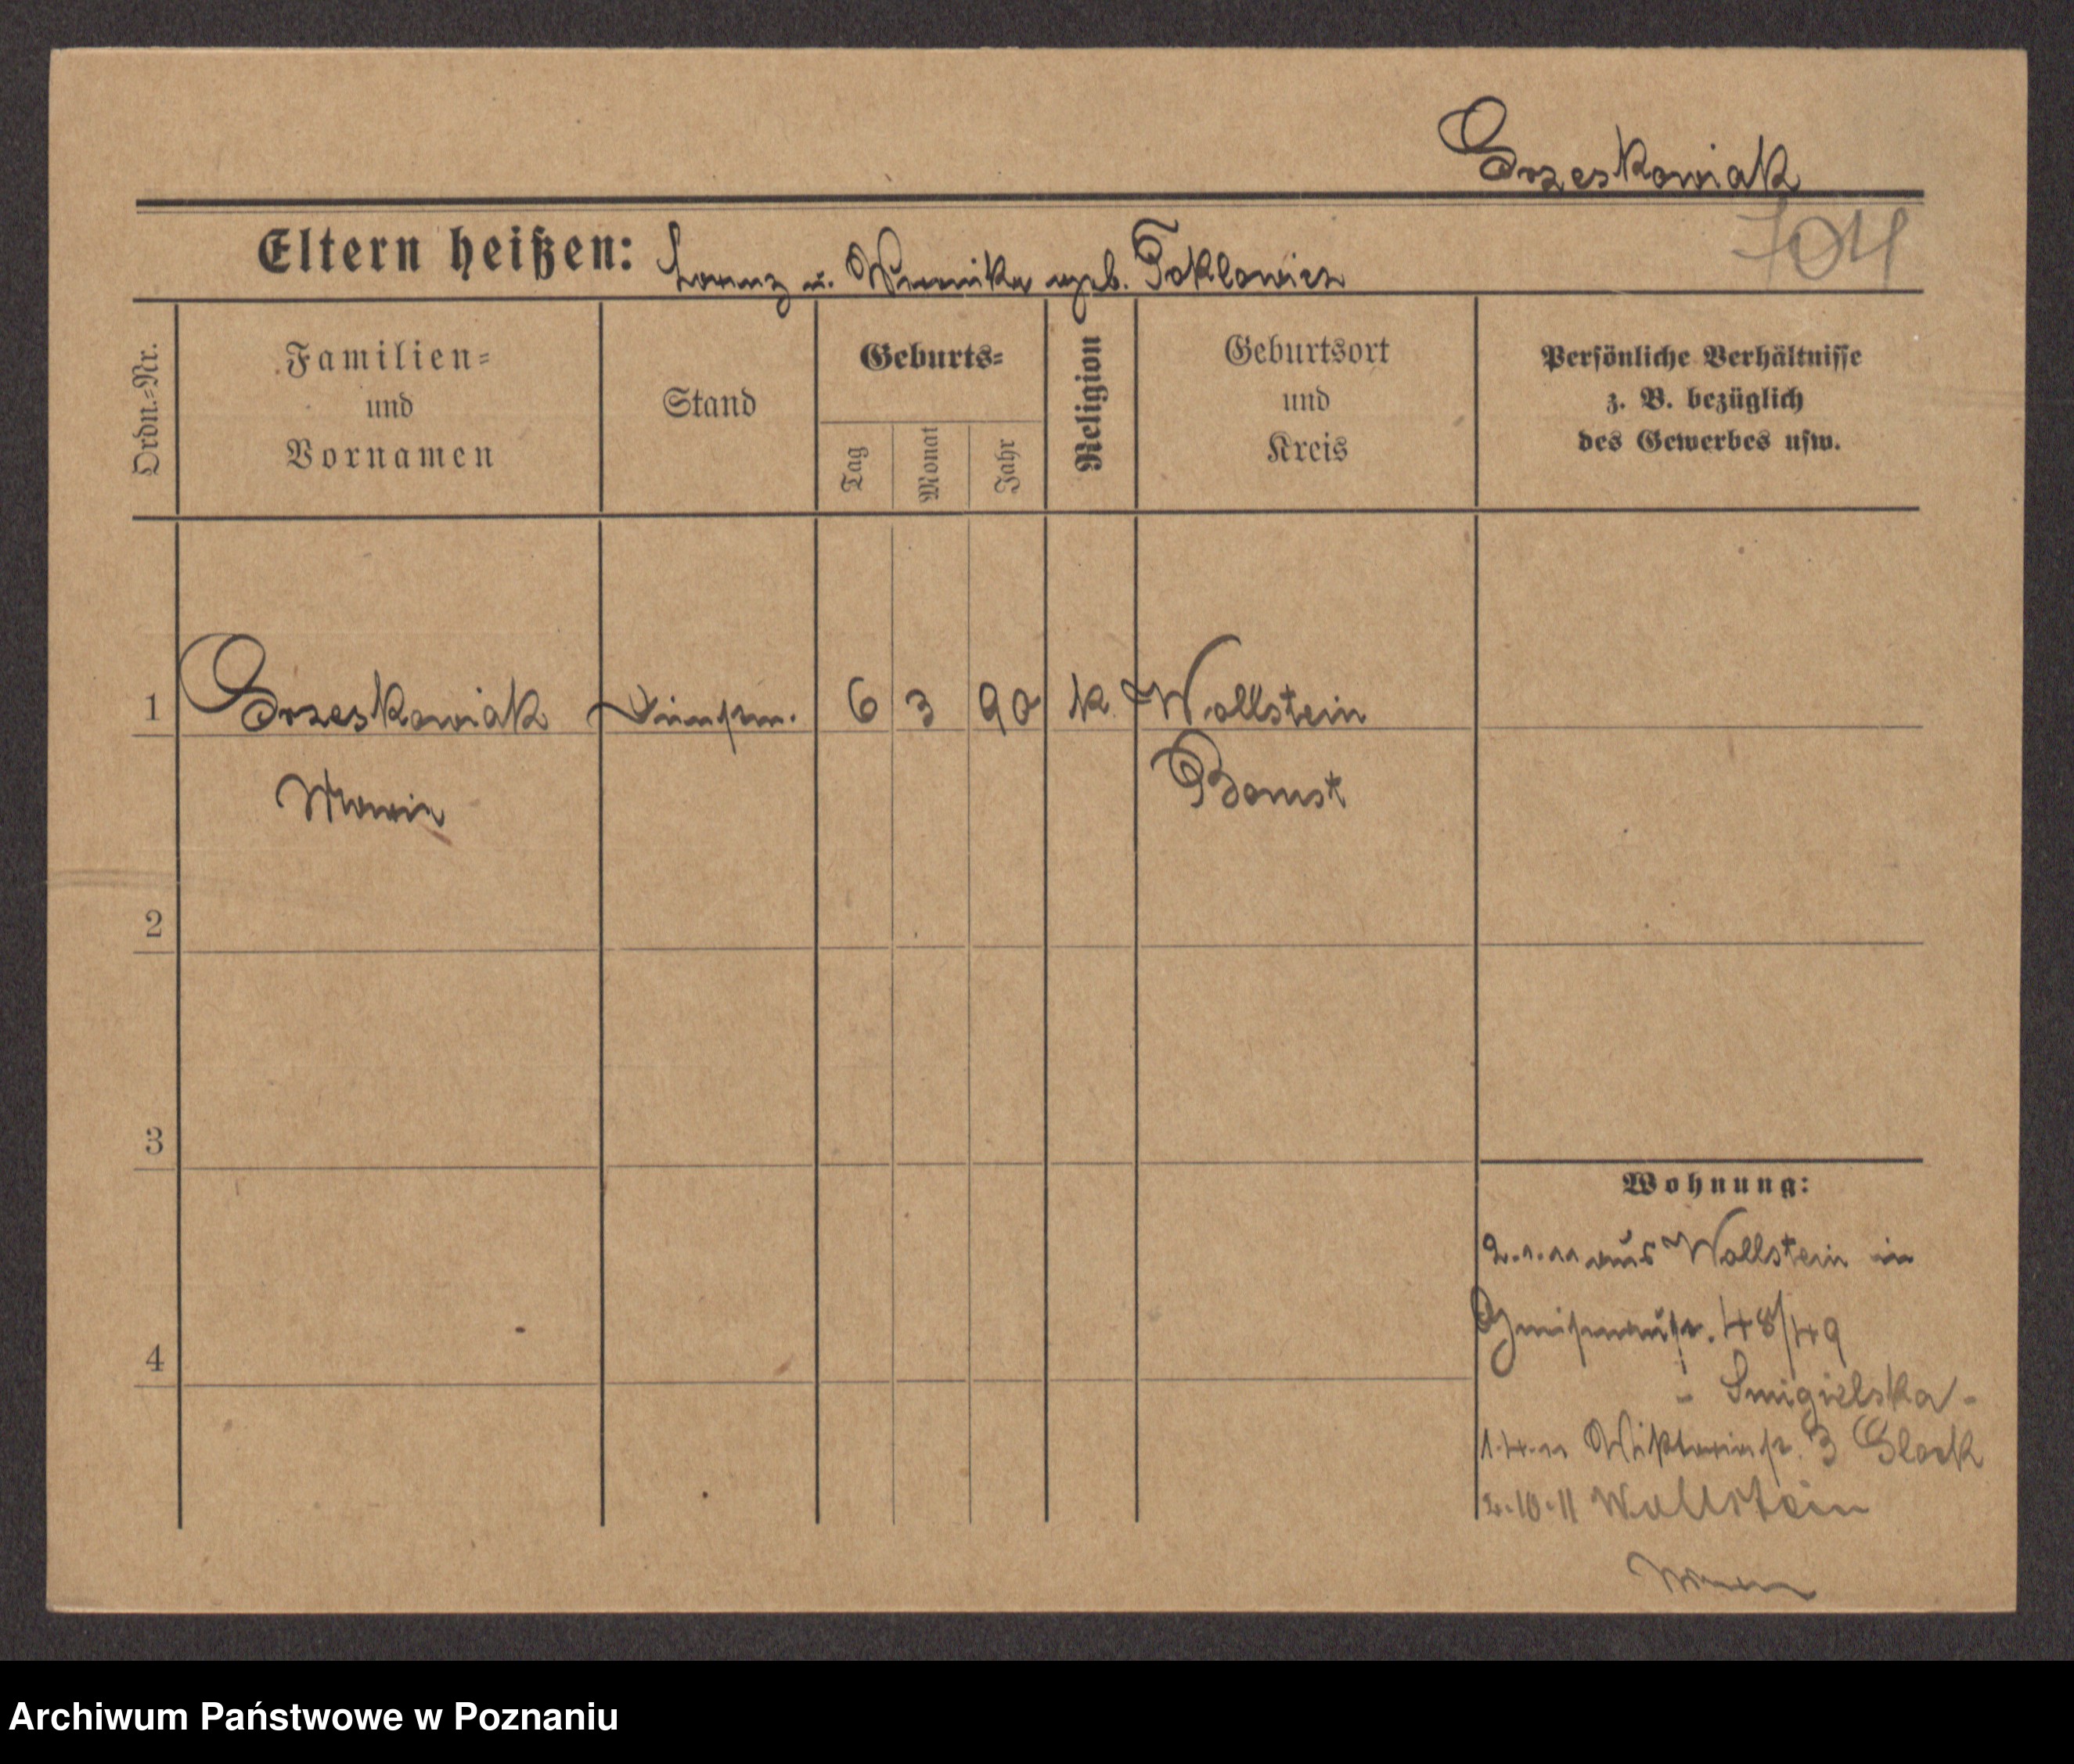 Grzeskowiak
704
Eltern heißen: Lorenz u. Veronika geb. Foklowicz
Ordn.=Nr.
Familien=
und
Vornamen
Stand
Geburts=
Tag
Monat
Jahr
Religion
Geburtsort
und
Kreis
Persönliche Verhältnisse
z. B. bezüglich
des Gewerbes usw.
1 Grzeskowiak 6 3 90 k Wollstein
Maria Bomst
2
3
4
Wohnung:
2.1.11 aus Wollstein in
Gneisenaustr. 48/49
- Smigielska -
1.4.11 Viktoriastr. 3 Glock
2.10.11 Wollstein
Archiwum Państwowe w Poznaniu